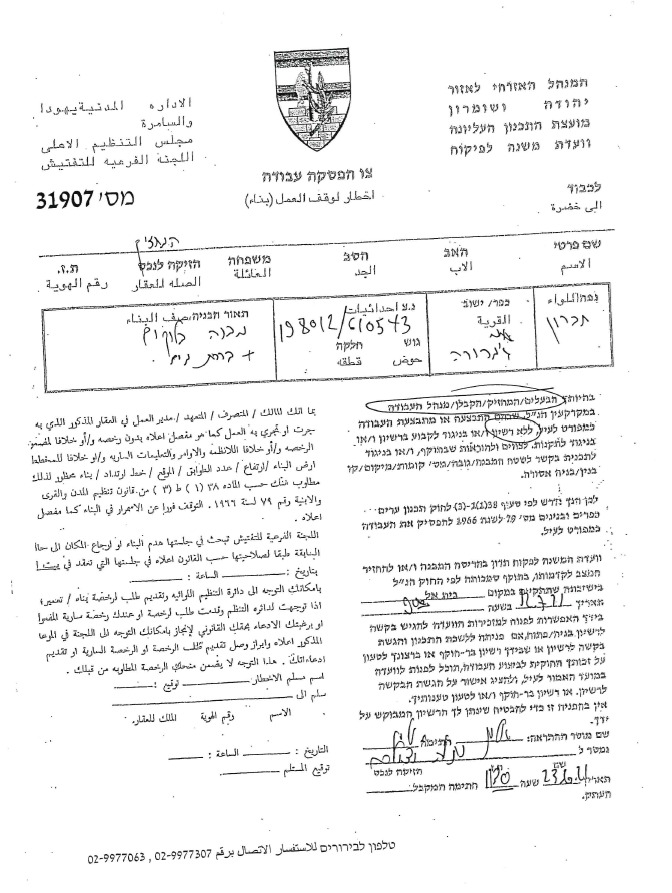 המנהל האזרחי לאזור
יהודה ושומרון
מועצת התכנון העליונה
וועדת משנה לפיקוח
الاداره المدنية يهودا
والسامرة
مجلس التنظيم الاعلى
اللجنة الفرعيه للتفتيش
צו הפסקה עבודה
اخطار لوقف العمل (بناء)
מס' 31907
לכבוד
الى حضرة
שם פרטי האב הסב משפחה הזיקה לנכס ת.ז.
الاسم الاب الجد العائلة الصله للعقار رقم الهوية
נפה اللواء
חברון
כפר/ישוב
القرية
נ.צ احداثيات
198012/610543
גוש חלקה
حوض قطعه
תאור הבניה/صف البناء
מבנה בלוקים
בהיותך הבעלים/המחזיק/הקבלן/מנהל העבודה
במקרקעין הנ"ל, שבהם התבצעה או מתבצעת העבודה
כמפורט לעיל, ללא רשיון ו/או בניגוד לקבוע ברשיון ו/או
בניגוד לתקנות, לצווים ולהוראות שבתוקף, ו/או בניגוד
לתכנית בקשר לשטח המבנה/גובה/מס' קומות/מיקום/קו
בנין/בניה אסורה.
לכן הנך נדרש לפי סעיף 38(1)(2-3) לחוק תכנון ערים
כפרים ובנינים מס' 79 לשנת 1966 להפסיק את העבודה
כמפורט לעיל.
וועדה המשנה לפקוח תדון בהריסת המבנה ו/או להחזיר
המצב לקדמותו, בתוקף סמכותה לפי החוק הנ"ל
בישיבתה שתתקיים במקום בית אל
תאריך בשעה
בידך האפשרות לפנות למזכירות הוועדה להגיש בקשה
לרשיון בניה/פתוח/אם פניתה ללשכת התכנון והגשת
בקשה לרשיון או שבידך רשיון בר-תוקף או ברצונך לטעון
על זכותך החוקית לביצוע העבודה, תוכל לפנות לוועדה
במועד האמור לעיל, ולהציג אישור על הגשת הבקשה
לרשיון, או רשיון בר-תוקף ו/או לטעון טענותיך.
אין בהפניה זו כדי להבטיח שינתן לך הרשיון המבוקש על
ידך.
שם מוסר ההתראה: חתימה
נמסר ל
הזיקה לנכס
תאריך שעה חתימה המקבל
העתק.
بما انك المالك / المتصرف / المتعهد / مدير العمل في العقار المذكور الذي به
جرت او تجري به العمل كما هو مفصل اعلاه بدون رخصه و/أو خلافا للمضمون
الرخصه و/أو خلافا للانظمة والاوامر والتعليمات الساريه و/او خلافا للمخطط
ارض البناء /ارتفاع/ عدد الطوابق / الموقع / خط ارتداد / بناء محظور لذلك
مطلوب منك حسب الماده ٣٨ (١) ط (٣) من قانون تنظيم المدن والقرى
والابنية رقم ٧٩ لسنة ١٩٦٦. التوقف فورا عن الاستمرار في البناء كما مفصل
اعلاه .
اللجنة الفرعيه للتفتيش تبحث في جلستها هدم البناء او ارجاع المكان الى حالته
السابقة طبقا لصلاحيتها حسب القانون اعلاه في جلستها التي تعقد في
بتاريخ: الساعة :
بامكانك التوجه الى دائرة التنظيم اللوائيه وتقديم طلب لرخصة بناء / تعمير؛
اذا توجهت لدائره التنظم وقدمت طلب لرخصة او عندك رخصة سارية المفعول
او برغبتك الادعاء بحقك القانوني لإنجاز بامكانك التوجه الى اللجنة في الموعد
المذكور اعلاه وابراز وصل تقديم طلب الرخصة او الرخصة السارية او تقديم
ادعاءاتك. هذا التوجه لا يضمن منحك الرخصة المطلوبه من قبلك .
اسم مسلم الاخطار توقيع :
سلم الى
الاسم رقم الهوية الملك للعقار.
التاريخ : الساعة :
توقيع المستلم
טלפון לבירורים للاستفسار الاتصال برقم 02-9977307 , 02-9977063